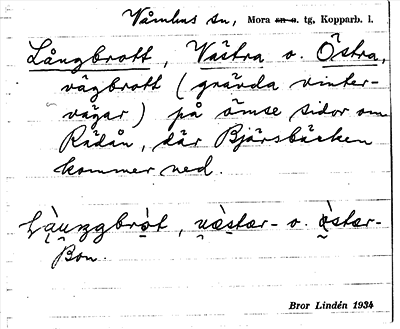 Våmhus sn, Mora sn o. tg, Kopparb. l.
Långbrott, Västra o. Östra,
vägbrott (grävda vinter-
vägar) på ömse sidor om
Rädån, där Bjärsbäcken
kommer ned.
væstær- o. östær-
Bon.
Bror Lindén 1934